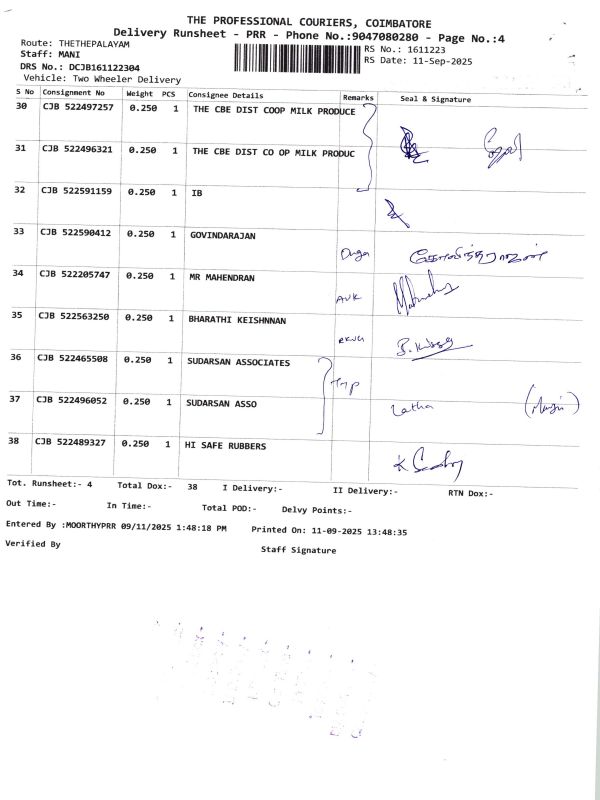 THE PROFESSIONAL COURIERS, COIMBATORE
Delivery Runsheet - PRR - Phone No.:9047080280 - Page No.:4
Route: THETHEPALAYAM
RS No.: 1611223
Staff: MANI
RS Date: 11-Sep-2025
DRS No.: DCJB161122304
Vehicle: Two Wheeler Delivery
S No Consignment No Weight PCS Consignee Details Remarks Seal & Signature
30 CJB 522497257 0.250 1 THE CBE DIST COOP MILK PRODUCE
31 CJB 522496321 0.250 1 THE CBE DIST CO OP MILK PRODUC
32 CJB 522591159 0.250 1 IB
33 CJB 522590412 0.250 1 GOVINDARAJAN
கோவிந்தராஜன்
34 CJB 522205747 0.250 1 MR MAHENDRAN
AVK
35 CJB 522563250 0.250 1 BHARATHI KEISHNNAN
36 CJB 522465508 0.250 1 SUDARSAN ASSOCIATES
37 CJB 522496052 0.250 1 SUDARSAN ASSO
Latha
38 CJB 522489327 0.250 1 HI SAFE RUBBERS
Tot. Runsheet:- 4 Total Dox:- 38 I Delivery:- II Delivery:- RTN Dox:-
Out Time:- In Time:- Total POD:- Delvy Points:-
Entered By :MOORTHYPRR 09/11/2025 1:48:18 PM Printed On: 11-09-2025 13:48:35
Verified By Staff Signature